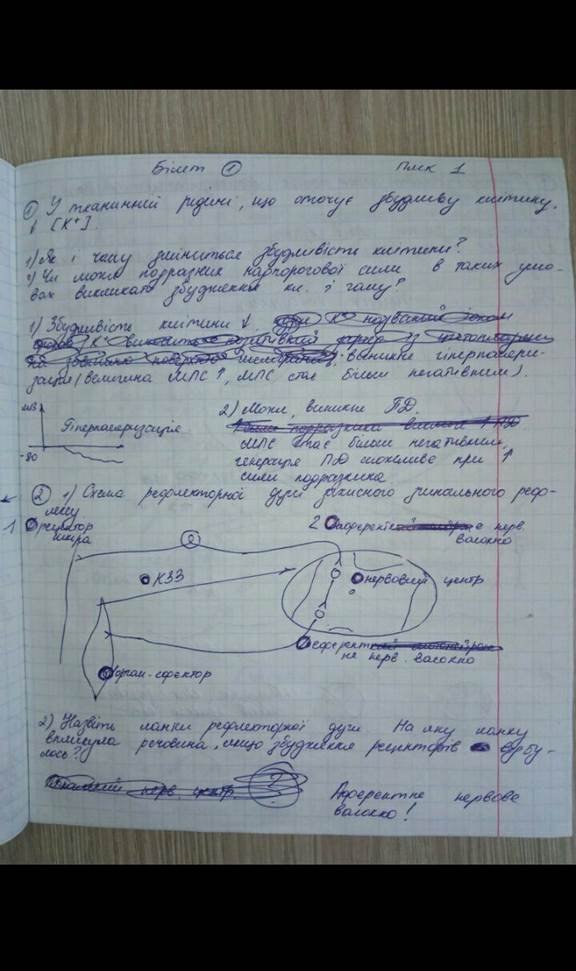 Білет ①
ПМК 1
① У тканинній рідині, що оточує збудливу клітину,
↓ [K⁺].
1) Як і чому зміниться збудливість клітини?
2) Чи може подразник надпорогової сили в таких умо-
вах викликати збудження кл. і чому?
1) Збудливість клітини ↓.
виникне гіперполяри-
зація (величина МПС ↑, МПС стає більш негативним).
мВ
Гіперполяризація
-80
2) Може, виникне ПД.
МПС стає більш негативним,
генерація ПД можлива при ↑
сили подразника
② 1) Схема рефлекторної дуги захисного спинального реф-
лексу
1 рецептор
шкіра
2 аферентне нерв.
волокно
КЗЗ
нервовий центр
еферент
не нерв. волокно
орган-ефектор
2) Назвіть ланки рефлекторної дуги На яку ланку
вплинула речовина, якщо збудження рецепторів відбу-
лось?
нерв. центр ?
Аферентне нервове
волокно!